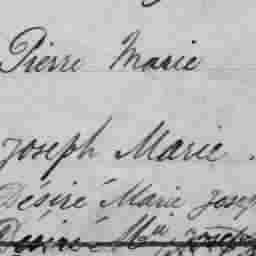 Pierre Marie
Joseph Marie.
Désiré Marie Josep
Désiré Mie Joseph